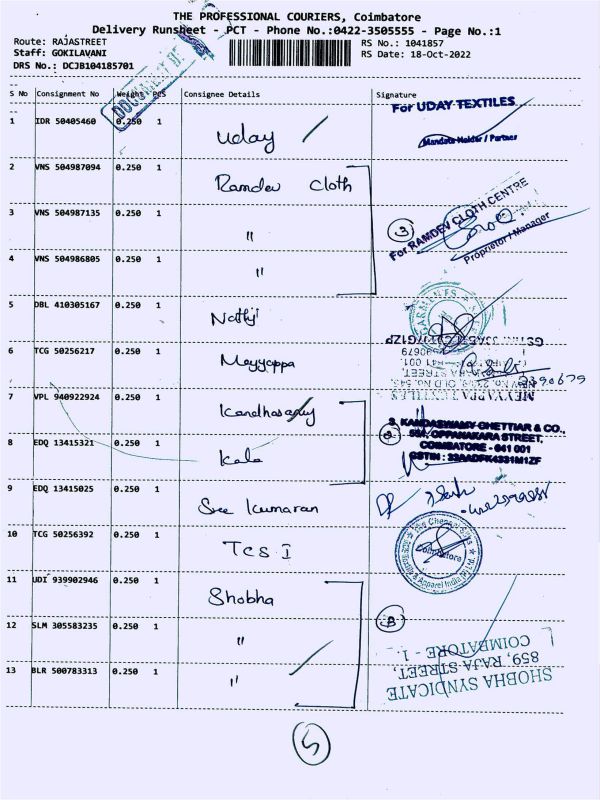 THE PROFESSIONAL COURIERS, Coimbatore
Delivery Runsheet - PCT - Phone No.:0422-3505555 - Page No.:1
Route: RAJASTREET
RS No.: 1041857
Staff: GOKILAVANI
RS Date: 18-Oct-2022
DRS No.: DCJB104185701
DOCUMENT
S No Consignment No Weight PCS Consignee Details Signature
For UDAY TEXTILES
1 IDR 50405460 0.250 1 Uday
Mandate Holder / Partner
2 VNS 504987094 0.250 1 Ramdev Cloth
3 VNS 504987135 0.250 1 "
3
For RAMDEV CLOTH CENTRE
Proprietor / Manager
4 VNS 504986805 0.250 1 "
5 DBL 410305167 0.250 1 Nathji
GARMENTS
6 TCG 50256217 0.250 1 Meyyappa
MEYYAPPA TEXTILES
7 VPL 940922924 1 Kandhasamy
S. KANDASWAMY CHETTIAR & CO.,
554, OPPANAKARA STREET,
COIMBATORE - 641 001
GSTIN : 33AADFK4331M1ZF
8 EDQ 13415321 0.250 1 Kala
9 EDQ 13415025 0.250 1 Sree Kumaran
10 TCG 50256392 0.250 1 TCS I
The Chennai Silks
Coimbatore
Textile & Apparel India (P) Ltd.
11 UDI 939902946 0.250 1 Shobha
12 SLM 305583235 0.250 1 "
3
13 BLR 500783313 0.250 1 "
SHOBHA SYNDICATE
859, RAJA STREET,
COIMBATORE - 1
5